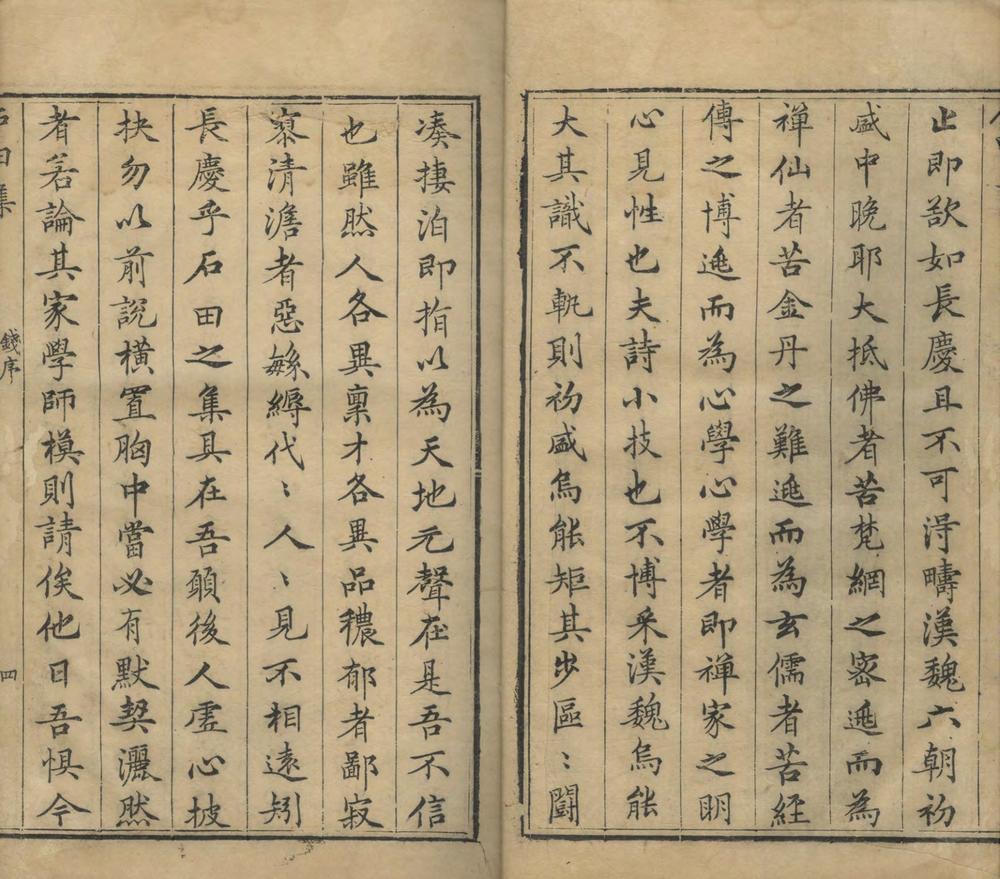 止即欲如長慶且不可得疇漢魏六朝初
盛中晚耶大抵佛者苦梵網之密遁而為
禅仙者苦金丹之難遁而為玄儒者苦經
傳之博遁而為心學心學者即禅家之明
心見性也夫詩小技也不博采漢魏烏能
大其識不軌則初盛烏能矩其步區〻闘
凑捿泊即指以為天地元聲在是吾不信
也雖然人各異稟才各異品穠郁者鄙寂
寡清澹者惡縣縟代〻人〻見不相遠矧
長慶乎石田之集具在吾願後人虛心披
抉勿以前說橫置胸中當必有默契灑然
者若論其家學師模則請俟他日吾惧今
石田集 錢序 四